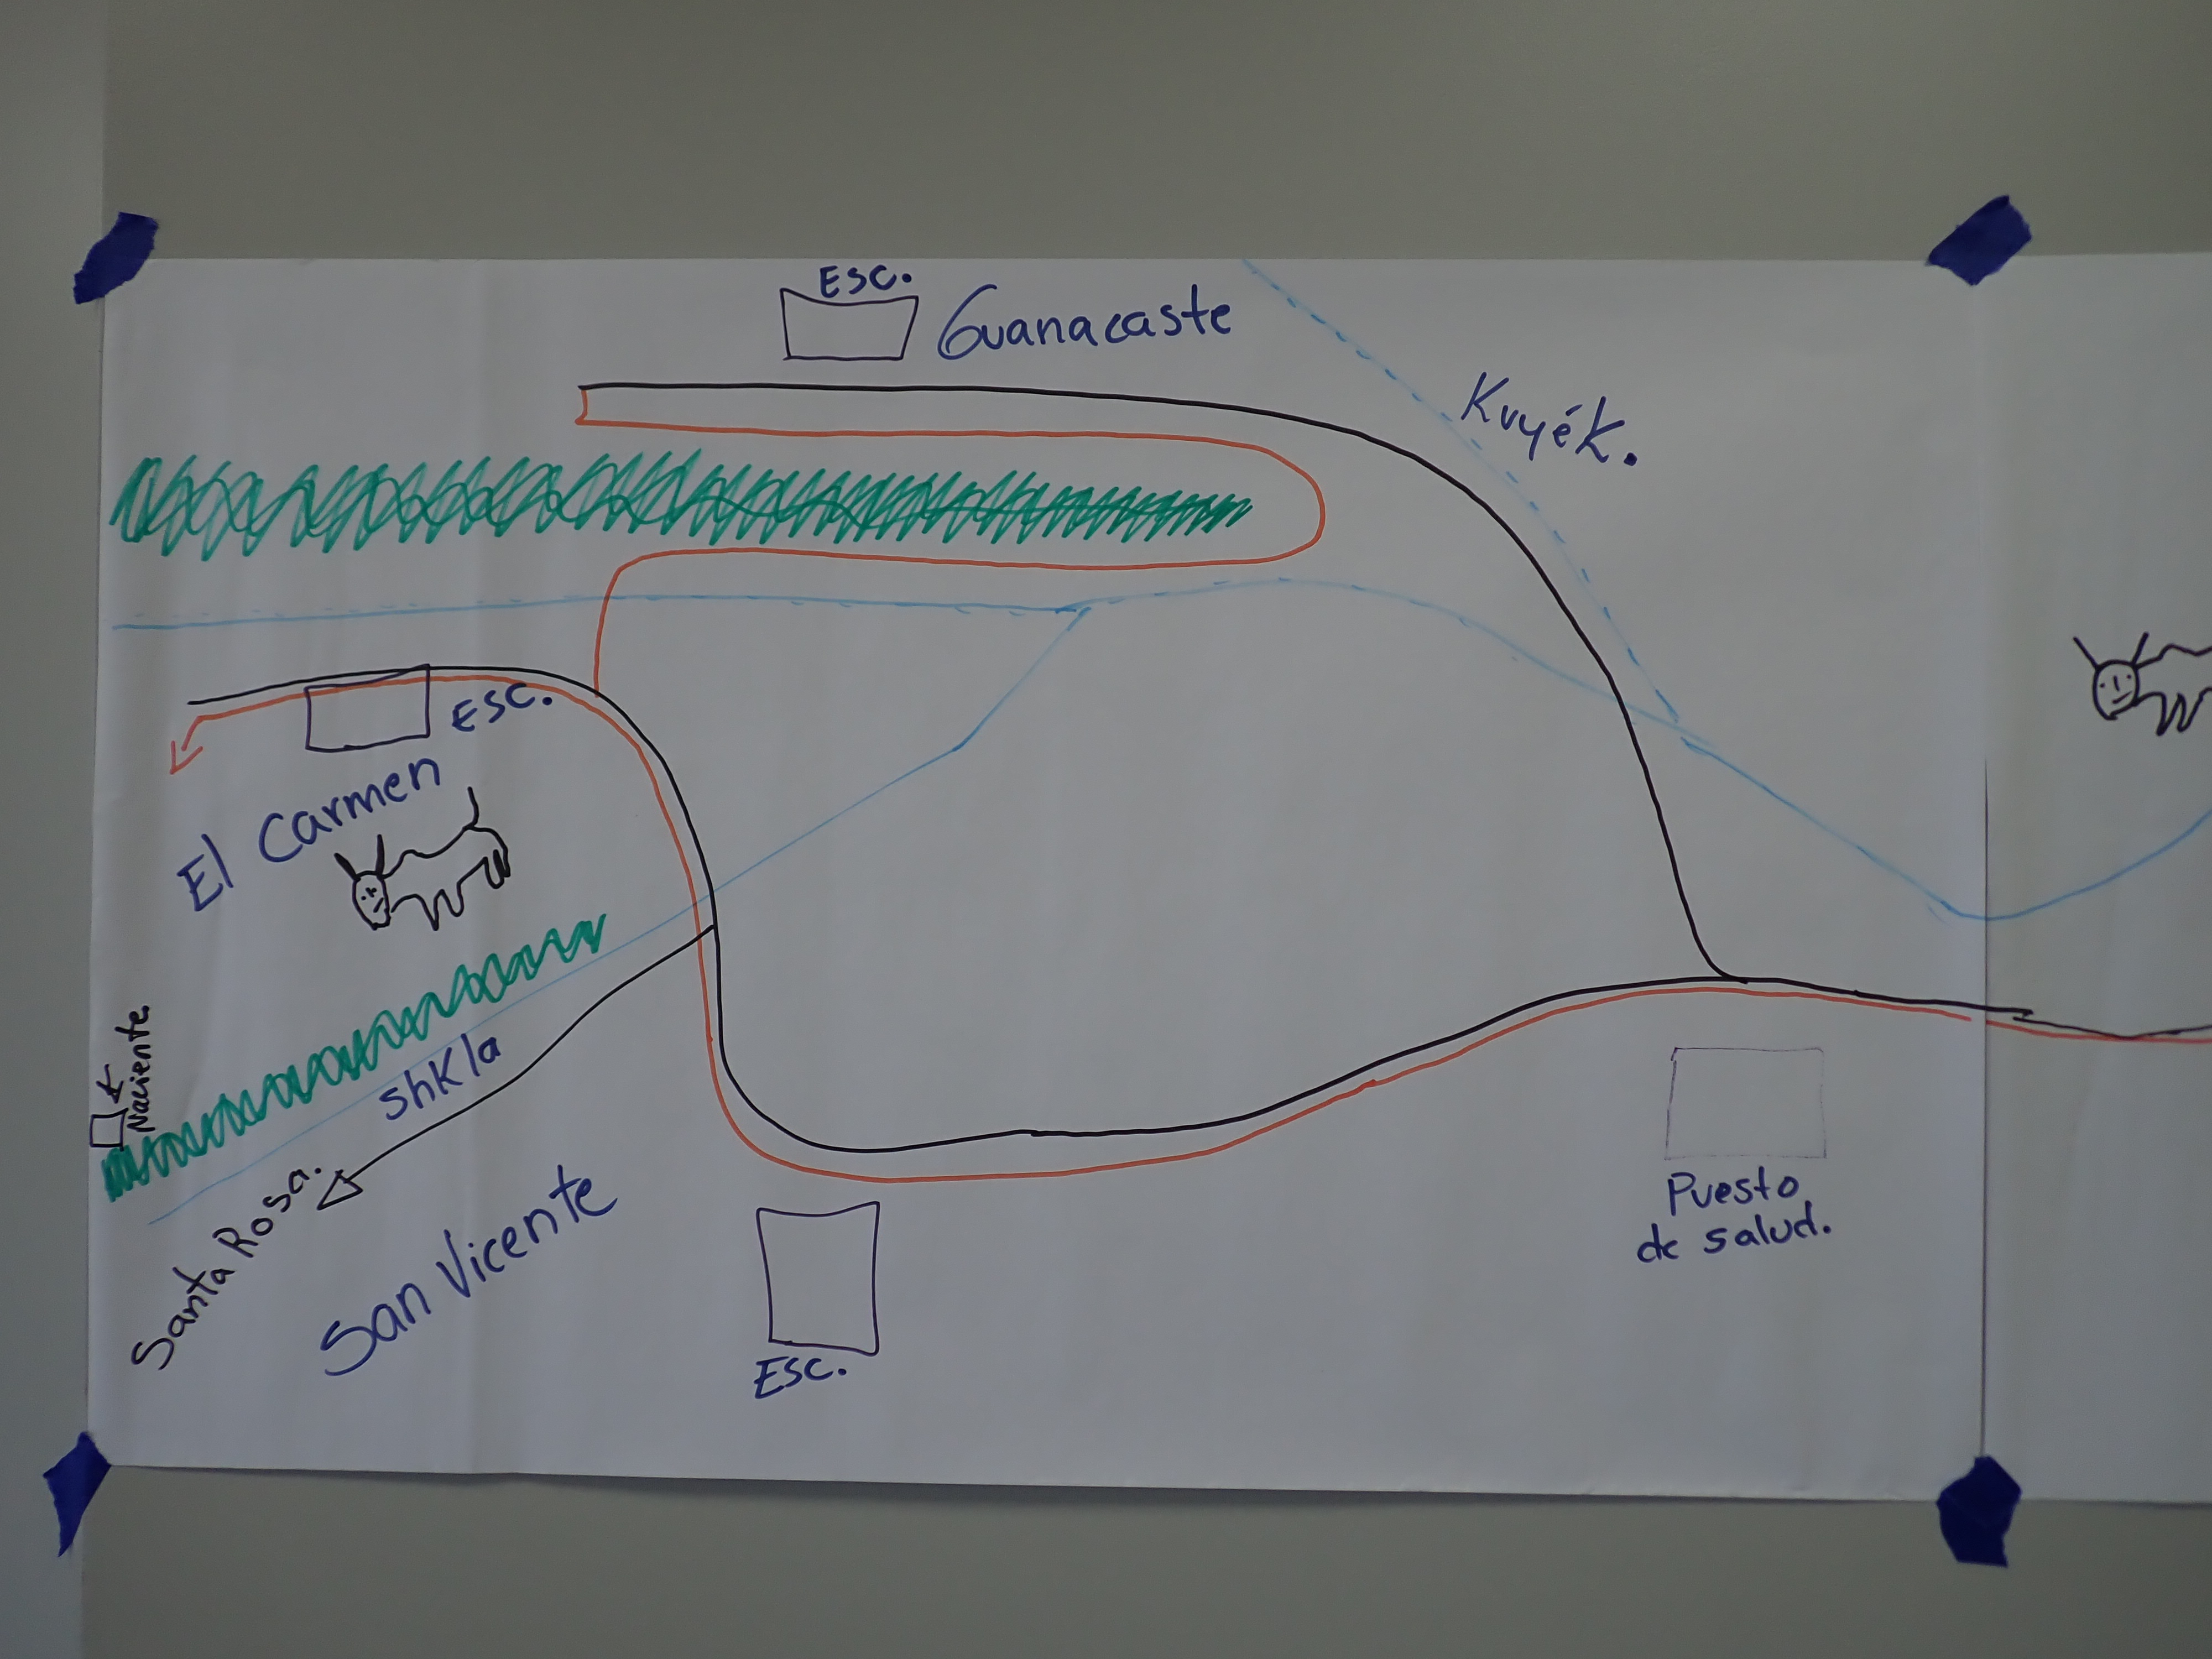 Esc.
Guanacaste
Kuyék.
Esc.
El Carmen
Naciente.
shKla
Santa Rosa.
San Vicente
Esc.
Puesto
de salud.